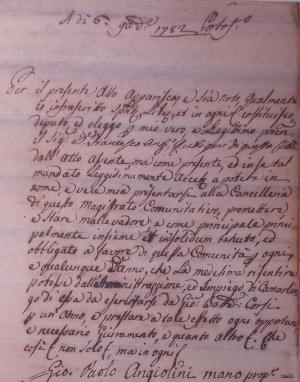 A di 6. 9bre 1782 Portof.o
Per il presente Atto Apparisca, e sia noto, qualmente
Io infrascritto Spont.e, Lib.e, et in ogni costituisco,
deputo, ed eleggo P mio vero, e Legittimo
il Sig.r Francesco di questo
dall'atto assente, ma come presente, ed in se tal
mandato Leggittimamente Accett a potere in
nome, e vece mia presentarsi alla Cancelleria
di questo Magistrato Comunitativo, promettere
e Stare mallevadore, e come principale prin-
cipalmente insieme, et insolidum tenuto, ed
obbligato a favore di essa Comunità P ogni
e qualunque Danno, che La medesima risentire
potesse dall' Amministrazione, ed Impiego di Camarlin-
go di essa da esercitarsi da Corsi
P un' Anno, e prestare a tale effetto ogni opportuno
e necessario Giuramento, e quanto altro che
così non solo, ma in ogni
Gio. Paolo Angiolini mano prop.a